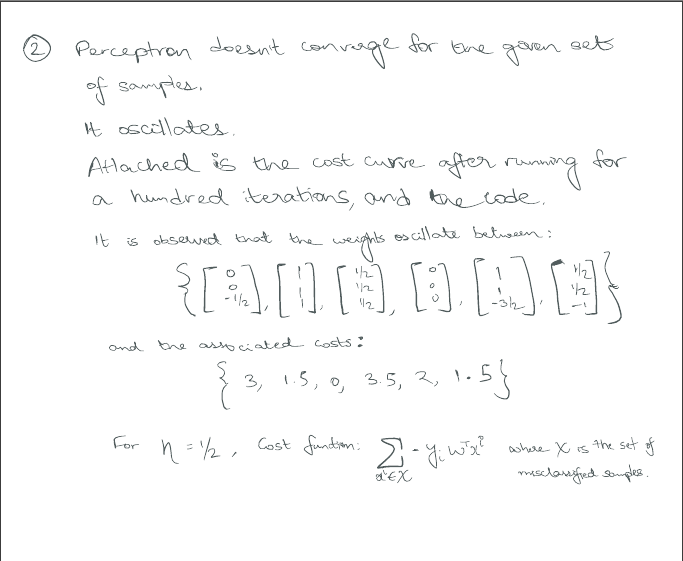 ② Perceptron doesn't converge for the given set
of samples.
It oscillates.
Attached is the cost curve after running for
a hundred iterations, and the code.
It is observed that the weights oscillate between:
{[0 0 -1/2], [1 1 1], [1/2 1/2 1/2], [0 0 0], [1 1 -3/2], [1/2 1/2 -1]}
and the associated costs:
{3, 1.5, 0, 3.5, 2, 1.5}
For η = 1/2, Cost function: ∑ - yᵢ wᵀxⁱ where X is the set of
xⁱ∈X misclassified samples.